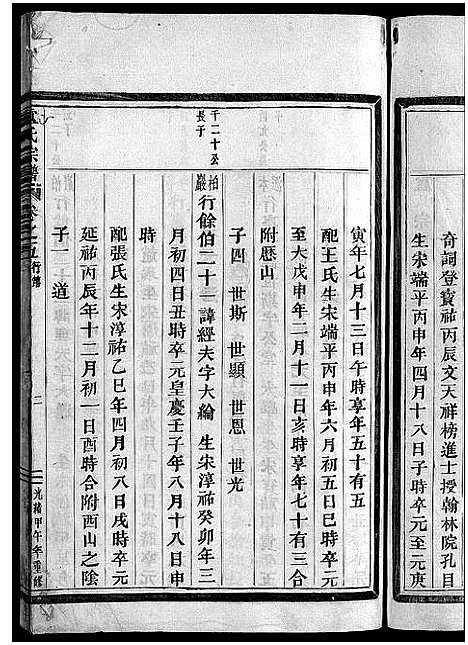 奇詞登寶祐丙辰文天祥榜進士授翰林院孔目
生宋端平丙申年四月十八日子時卒元至元庚
寅年七月十三日午時享年五十有五
配王氏生宋端平丙申年六月初五日巳時卒元
至大戊申年二月十一日亥時享年七十有三合
附歷山
子四 世斯 世顯 世恩 世光
千二十公長子
柏巖行餘伯二十一諱經夫字大綸 生宋淳祐癸卯年三
月初四日丑時卒元皇慶壬子年八月十八日申
時
配張氏生宋淳祐乙巳年四月初八日戌時卒元
延祐丙辰年十二月初一日酉時合附西山之陰
子一 道
氏宗譜 卷之五 行傳 二 光緒甲午年重修